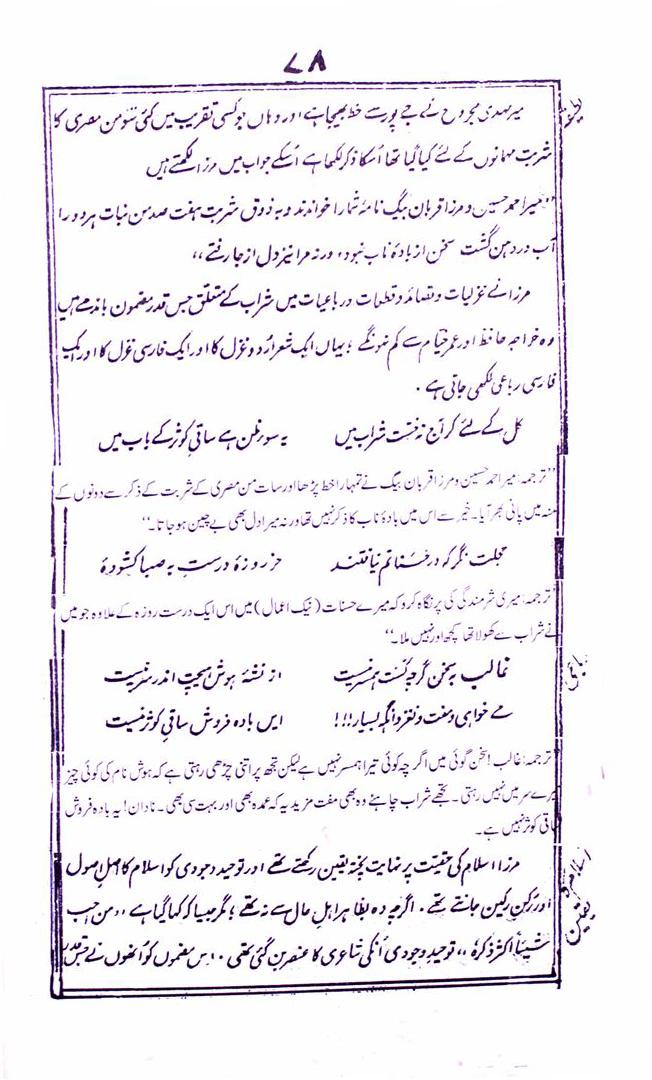 ۷۸
میر مہدی مجروح نے جے پور سے خط بھیجا ہے اور وہاں جو کسی تقریب میں کئی سَو من مصری کا
شربت مہمانوں کے لئے کیا گیا تھا اُسکا ذکر لکھا ہے اُسکے جواب میں مرزا لکھتے ہیں
"میر احمد حسین و مرزا قربان بیگ نامۂ شمارا خواندند و بہ ذوق شربت ہفت صد من نبات ہر دو را
آب در دہن گشت سخن از بادۂ ناب نبود، ورنہ مرا نیز دل از جا رفتے"
مرزا نے غزلیات و قصائد و قطعات و رباعیات میں شراب کے متعلق جس قدر مضمون باندھے ہیں
وہ خواجہ حافظ اور عمر خیام سے کم نہونگے؛ یہاں ایک شعر اُردو غزل کا اور ایک فارسی غزل کا اور ایک
فارسی رباعی لکھی جاتی ہے۔
کل کے لئے کر آج نہ خست شراب میں یہ سوءِ ظن ہے ساقیِ کوثر کے باب میں
"ترجمہ: میر احمد حسین و مرزا قربان بیگ نے تمہارا خط پڑھا اور سات من مصری کے شربت کے ذکر سے دونوں کے
منہ میں پانی بھر آیا۔ خیر سے اس میں بادۂ ناب کا ذکر نہیں تھا ورنہ میرا دل بھی بے چین ہو جاتا۔"
خجلت نگر کہ در حسناتم نیافتند جز روزۂ درست بہ صہبا کشودۂ
"ترجمہ: میری شرمندگی کی پر نگاہ کرو کہ میرے حسنات (نیک اعمال) میں اس ایک درست روزہ کے علاوہ جو میں
نے شراب سے کھولا تھا کچھ اور نہیں ملا۔"
رباعی
غالب بہ سخن گرچہ کست ہمسر نیست از نشۂ ہوش ہیچت اندر سر نیست
مے خواہی و مفت و نغز و انگہ بسیار!!! ایں بادہ فروش ساقیِ کوثر نیست
ترجمہ: غالب! سخن گوئی میں اگرچہ کوئی تیرا ہمسر نہیں ہے لیکن تجھ پر اتنی چڑھی رہتی ہے کہ ہوش نام کی کوئی چیز
تیرے سر میں نہیں رہتی۔ تجھے شراب چاہئے وہ بھی مفت مزید یہ کہ عمدہ بھی اور بہت سی بھی۔ نادان! یہ بادہ فروش
ساقی کوثر نہیں ہے۔
اسلام پر یقین
مرزا اسلام کی حقیقت پر نہایت پختہ یقین رکھتے تھے اور توحید وجودی کو اسلام کا اصل اصول
اور رُکنِ رکین جانتے تھے۔ اگرچہ وہ بظاہر اہلِ حال سے نہ تھے؛ مگر جیسا کہ کہا گیا ہے "من احب
شیئاً اکثر ذکرہٗ"، توحیدِ وجودی اُنکی شاعری کا عنصر بن گئی تھی۔ اِس مضمون کو اُنھوں نے جس قدر